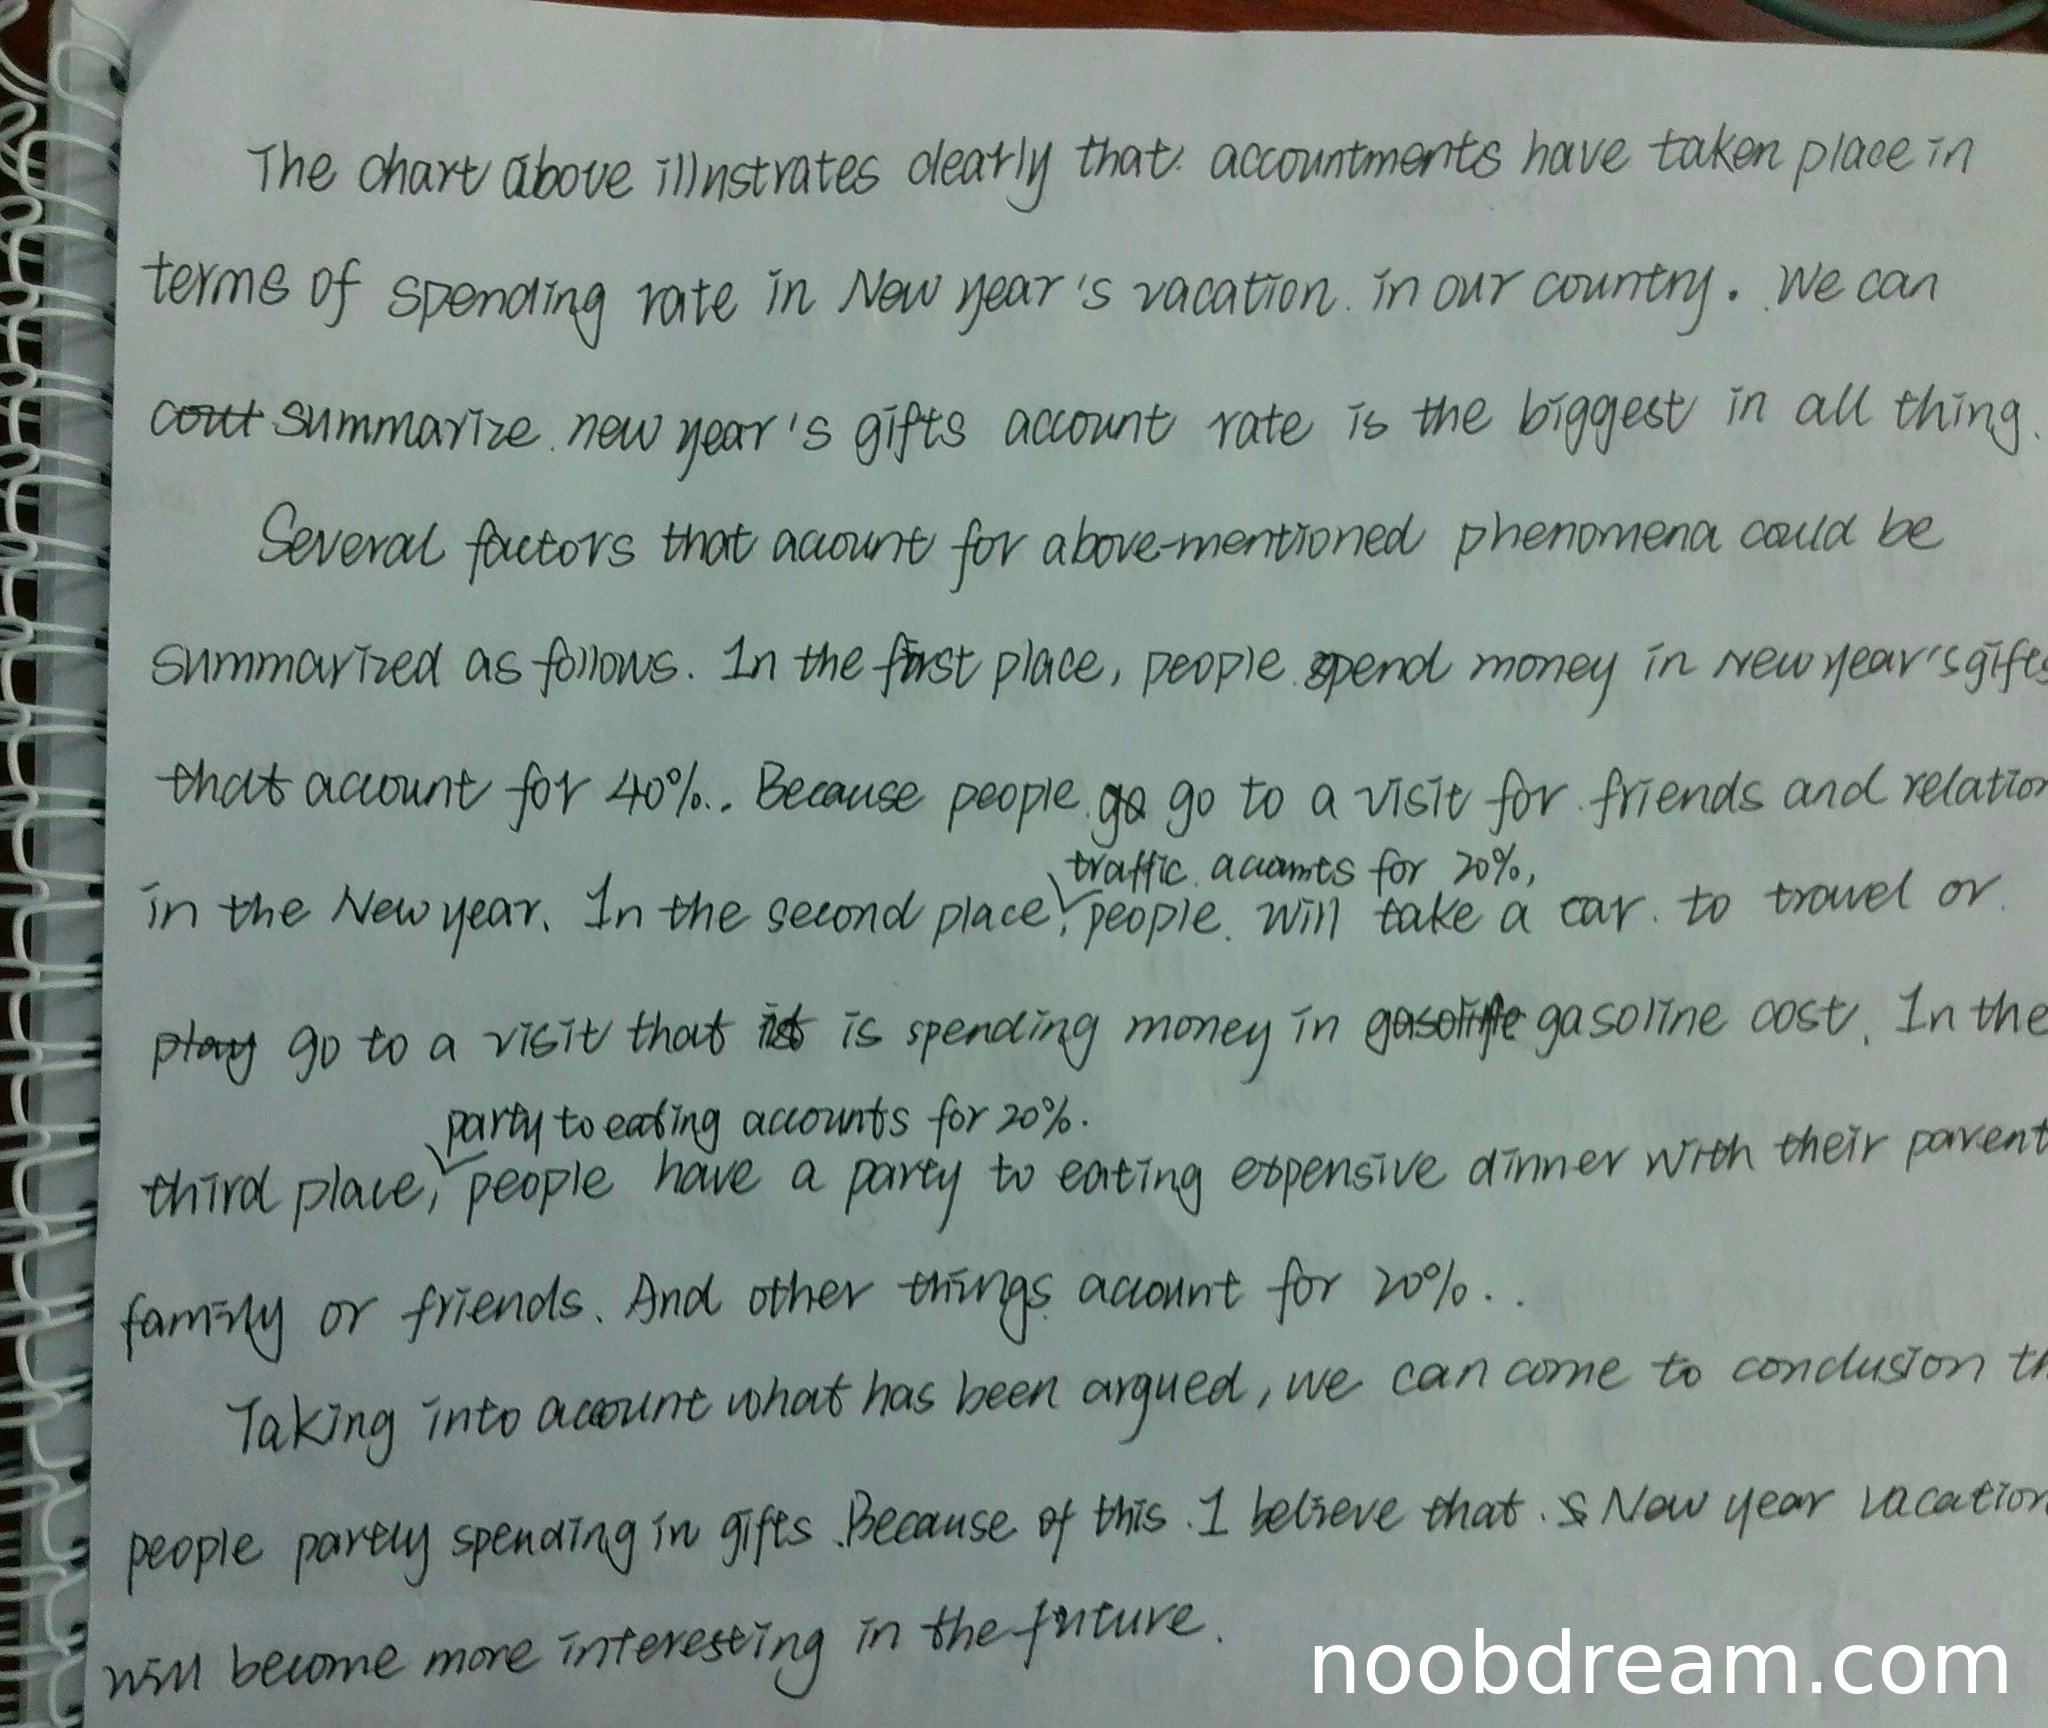 The chart above illustrates clearly that accountments have taken place in
terms of spending rate in New year's vacation in our country. We can
summarize new year's gifts account rate is the biggest in all thing.
Several factors that account for above-mentioned phenomena could be
summarized as follows. In the first place, people spend money in New year's gifts
that account for 40%.. Because people go to a visit for friends and relation
traffic accounts for 20%,
in the New year. In the second place, people will take a car to travel or
play go to a visit that is spending money in gasoline cost. In the
party to eating accounts for 20%.
third place, people have a party to eating expensive dinner with their parent
family or friends. And other things account for 20%..
Taking into account what has been argued, we can come to conclusion th
people partly spending in gifts. Because of this. I believe that New year vacation
will become more interesting in the future.
noobdream.com